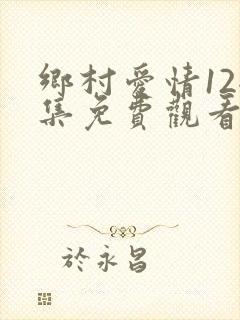 鄉村愛情12
集免費觀看
於永昌